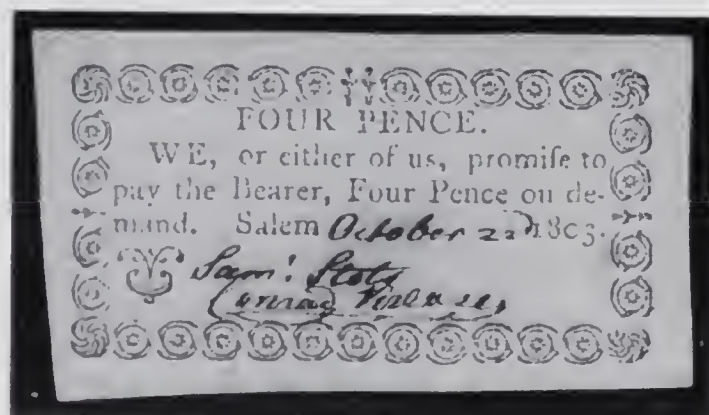 FOUR PENCE.
WE, or either of us, promiſe to
pay the Bearer, Four Pence on de-
mand. Salem October 22d 1803.
Sam! Stotz
Conrad